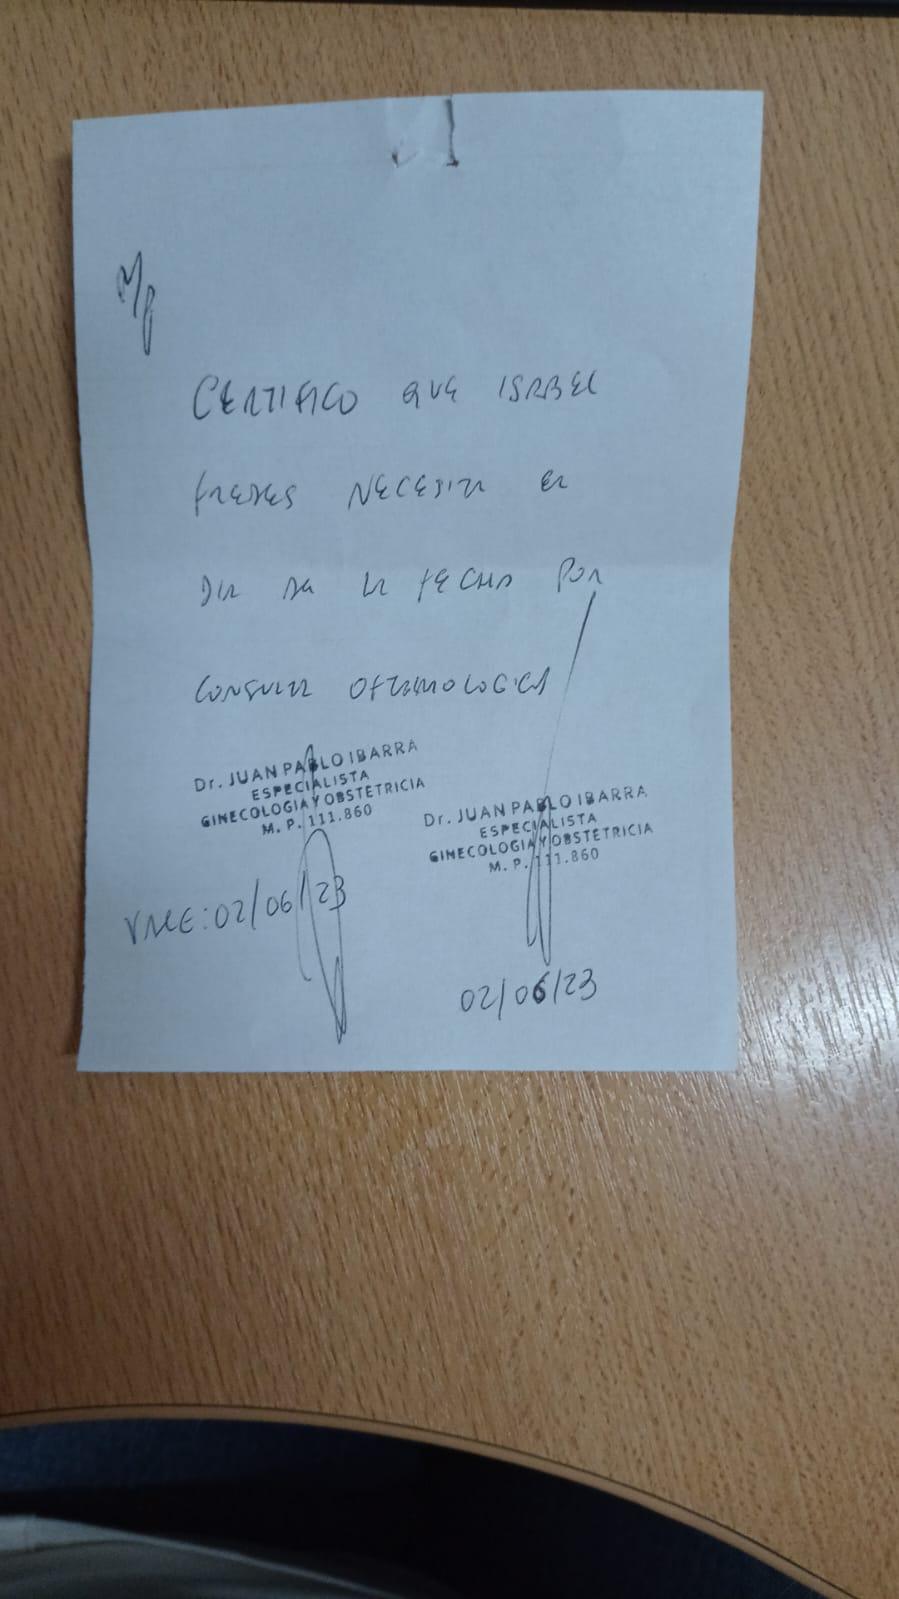 M/P
CERTIFICO QUE ISABEL
NECESITA EL
DIA DE LA FECHA POR
CONSULTA OFTALMOLOGICA
Dr. JUAN PABLO IBARRA
ESPECIALISTA
GINECOLOGIA Y OBSTETRICIA
M. P. 111.860
Dr. JUAN PABLO IBARRA
ESPECIALISTA
GINECOLOGIA Y OBSTETRICIA
M. P. 111.860
VALE: 02/06/23
02/06/23